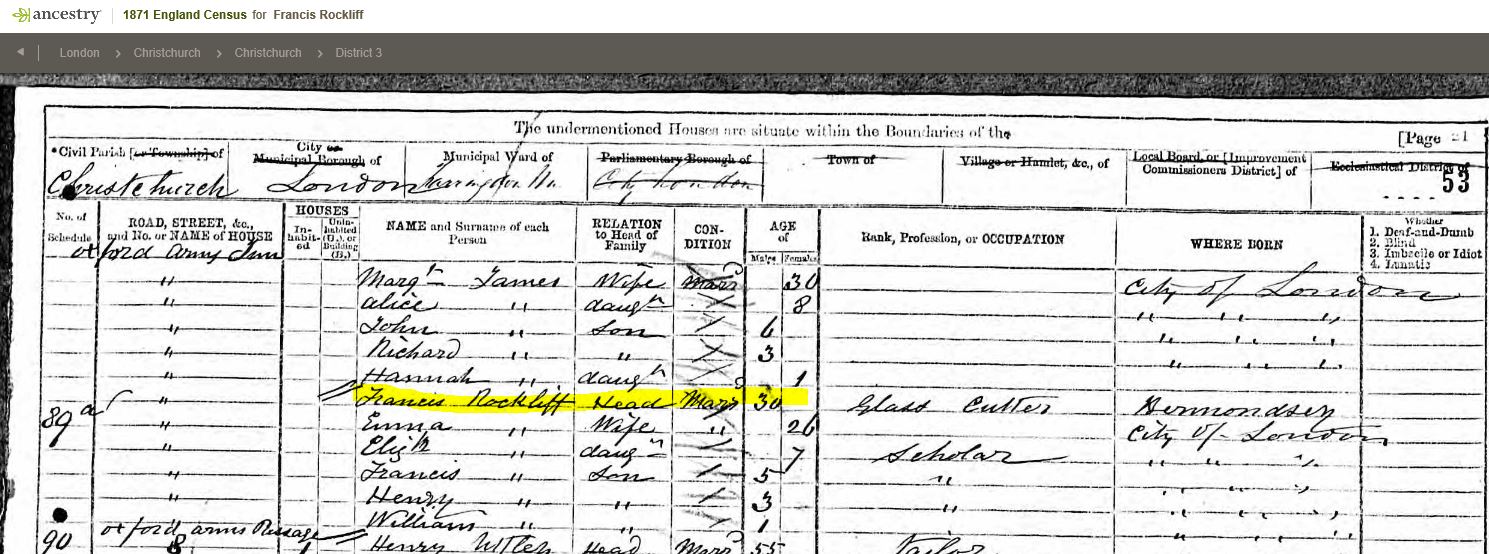 ancestry 1871 England Census for Francis Rockliff
London > Christchurch > Christchurch > District 3
The undermentioned Houses are situate within the Boundaries of the
[Page 21
*Civil Parish [or Township] of City or Municipal Borough of Municipal Ward of Parliamentary Borough of Town of Village or Hamlet, &c., of Local Board, or [Improvement Commissioners District] of Ecclesiastical District of
Christchurch London Farringdon Wn. City London 53
No. of Schedule ROAD, STREET, &c., and No. or NAME of HOUSE HOUSES In-habit-ed Unin-habited (U.), or Building (B.) NAME and Surname of each Person RELATION to Head of Family CON-DITION AGE of Males Females Rank, Profession, or OCCUPATION WHERE BORN Whether 1. Deaf-and-Dumb 2. Blind 3. Imbecile or Idiot 4. Lunatic
Oxford Arms Inn
" Margt James Wife Marr 30 City of London
" Alice " daugr 8 " " "
" John " Son 6 " " "
" Richard " " 3 " " "
" Hannah " daugr 1
89a " Francis Rockliff Head Marr 30 Glass Cutter Bermondsey
" Emma " Wife " 26 City of London
" Elizth " daugr 7 Scholar " " "
" Francis " Son 5 " " " "
" Henry " " 3 " " " "
William " " 1 " " "
90 Oxford Arms Passage
8 1 Henry Head Marr 55 Tailor